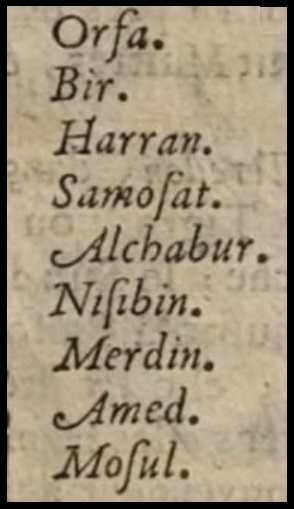 Orſa.
Bir.
Harran.
Samoſat.
Alchabur.
Niſibin.
Merdin.
Amed.
Moſul.